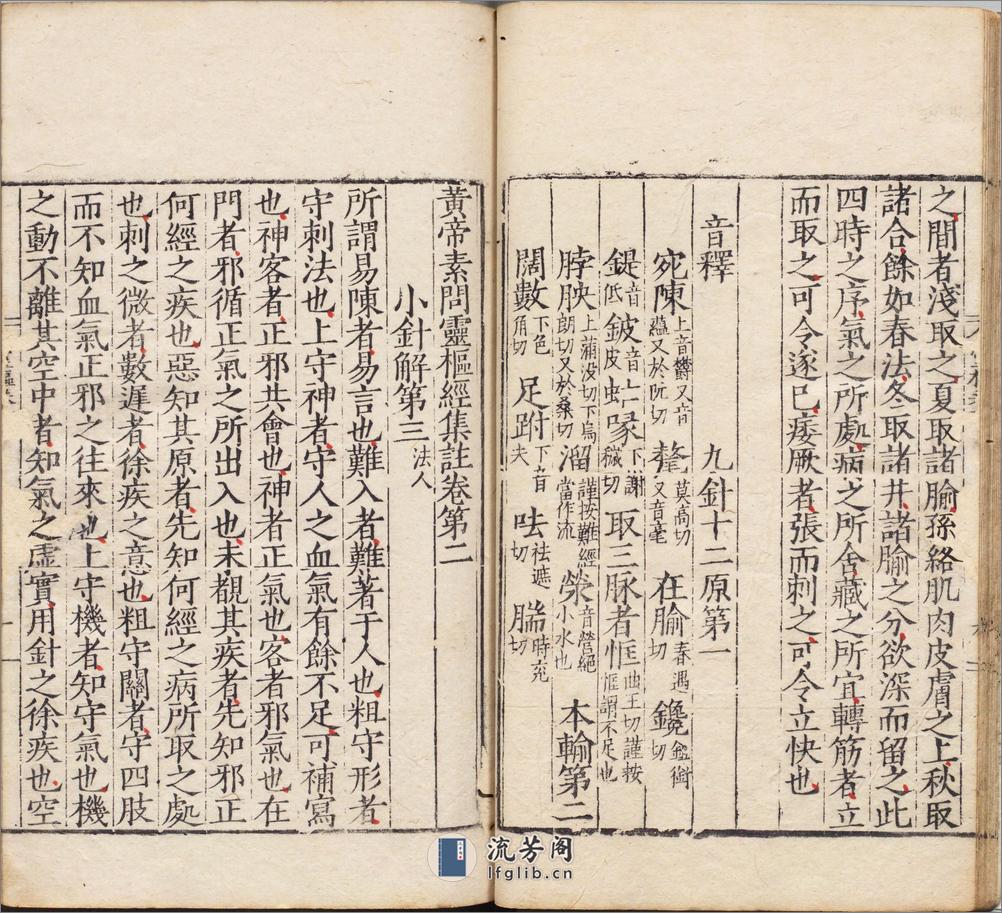 之間者淺取之夏取諸腧孫絡肌肉皮膚之上秋取
諸合餘如春法冬取諸井諸腧之分欲深而留之此
四時之序氣之所處病之所舍藏之所宜轉筋者立
而取之可令遂已痿厥者張而刺之可令立快也
音釋
九針十二原第一
宛陳上音鬱又音蘊又於阮切 氂莫高切又音毫 在腧春遇切 鑱鋤銜切
鍉音低 鈹音皮 虻喙下謝穢切 取三脉者恇曲王切謹按恇謂不足也
脖胦上蒲没切下烏朗切又於桑切 溜謹按難經當作流 滎音營絕小水也 本輸第二
闊數下色角切 足跗下音夫 呿祛遮切 腨時兖切
黃帝素問靈樞經集註卷第二
小針解第三法人
所謂易陳者易言也難入者難著于人也粗守形者
守刺法也上守神者守人之血氣有餘不足可補寫
也神客者正邪共會也神者正氣也客者邪氣也在
門者邪循正氣之所出入也未覩其疾者先知邪正
何經之疾也惡知其原者先知何經之病所取之處
也刺之微者數遲者徐疾之意也粗守關者守四肢
而不知血氣正邪之往來也上守機者知守氣也機
之動不離其空中者知氣之虛實用針之徐疾也空
流芳阁
lfglib.cn